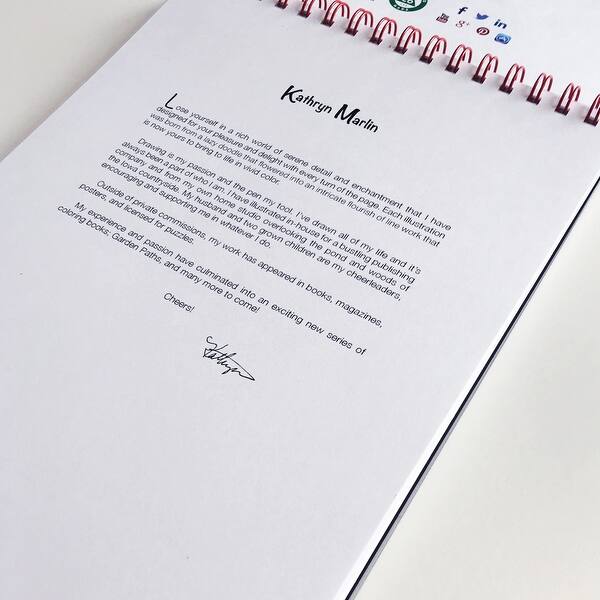 Kathryn Marlin
Lose yourself in a rich world of serene detail and enchantment that I have
designed for your pleasure and delight with every turn of the page. Each illustration
was born from a lazy doodle that flowered into an intricate flourish of line work that
is now yours to bring to life in vivid color.
Drawing is my passion and the pen my tool. I've drawn all of my life and it's
always been a part of who I am. I have illustrated in-house for a bustling publishing
company and from my own home studio overlooking the pond and woods of
the Iowa countryside. My husband and two grown children are my cheerleaders,
encouraging and supporting me in whatever I do.
Outside of private commissions, my work has appeared in books, magazines,
posters, and licensed for puzzles.
My experience and passion have culminated into an exciting new series of
coloring books, Garden Paths, and many more to come!
Cheers!
Kathryn